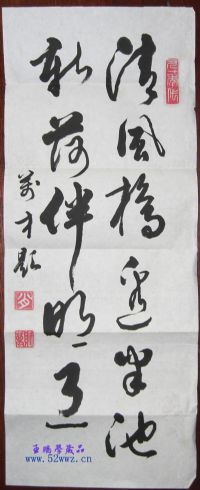 清風橋邊半池
新荷伴明月
萬才題
www.52wwz.cn